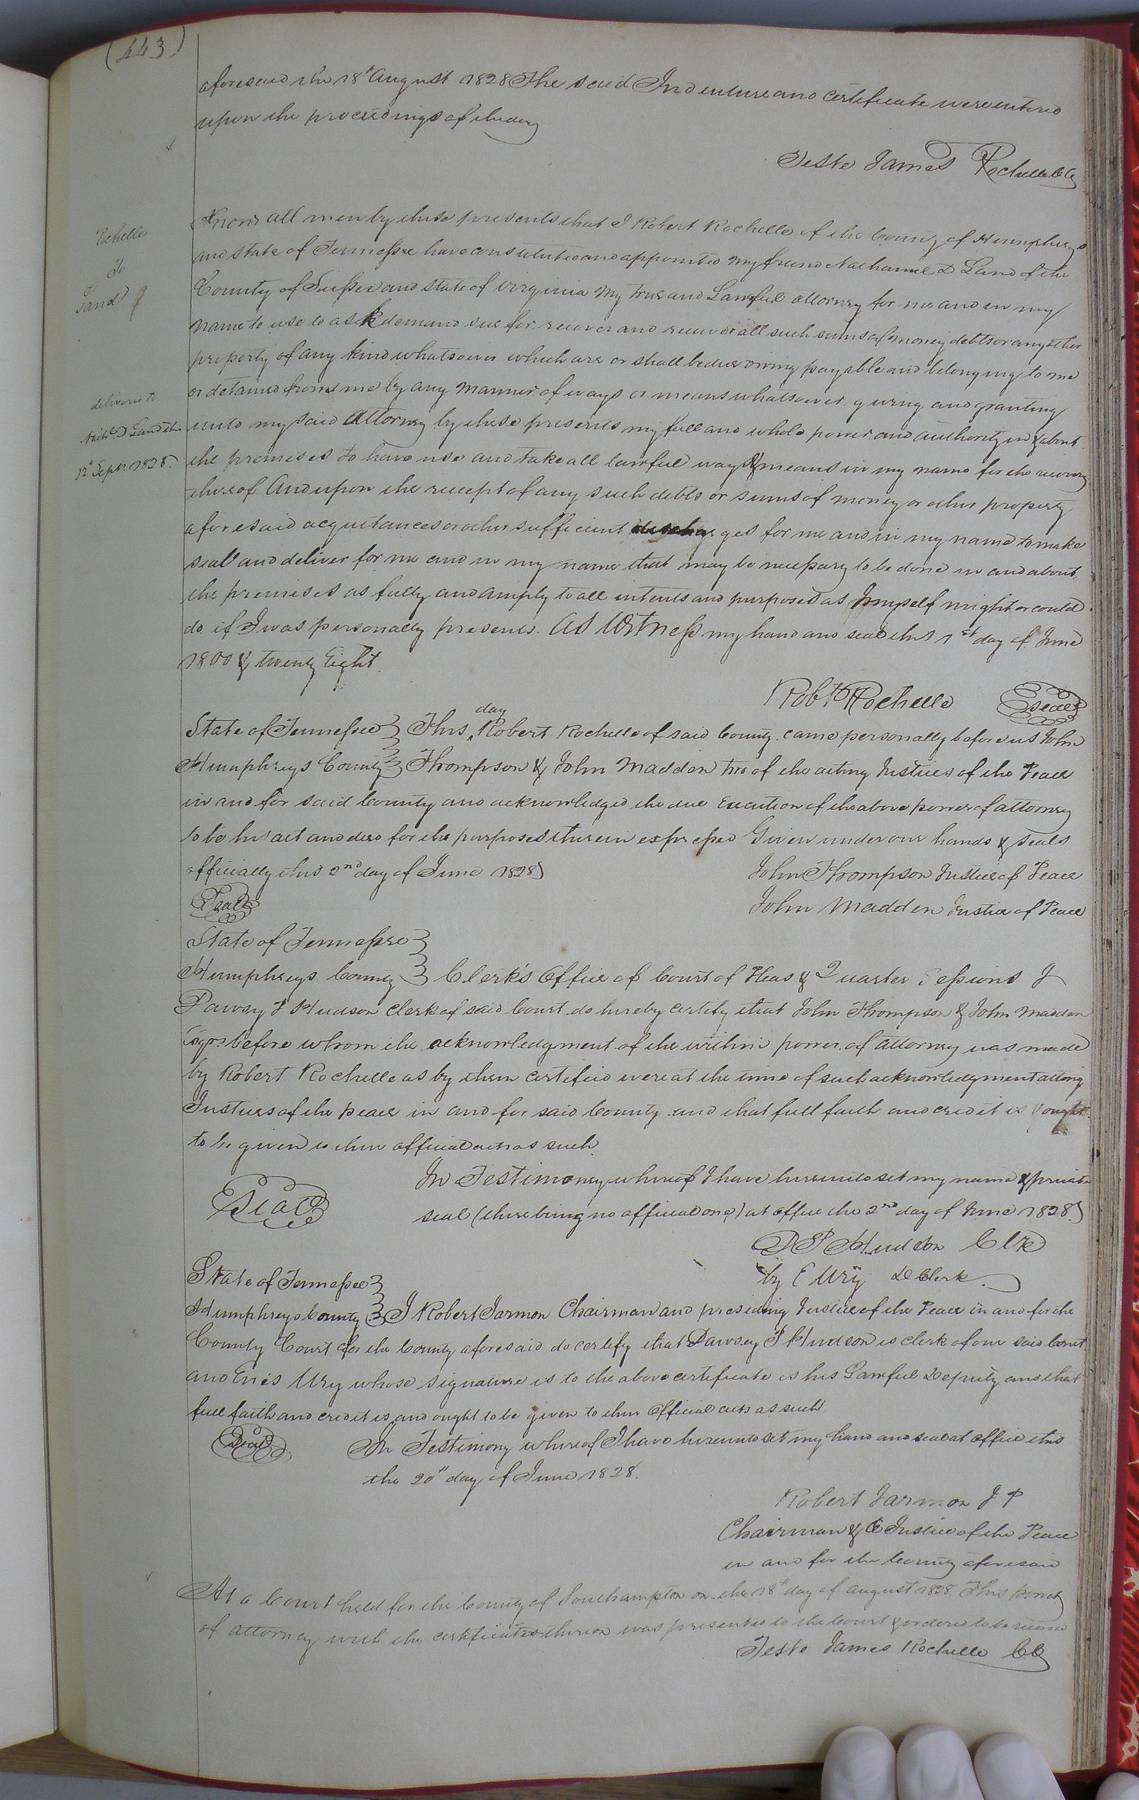 (443)
aforesaid the 18th August 1828 The said Indenture and Certificate were entered
upon the proceedings of the day
Teste James Rochelle Clk
Rochelle
To
Land
delivered to
Nathl D Land the
12th Septr 1828.
Know all men by these presents that I Robert Rochelle of the County of Humphreys
and state of Tennessee have constituted and appointed my friend Nathaniel D Land of the
County of Sussex and state of Virginia my true and Lawful attorney for me and in my
name to use to ask demand sue for recover and receive all such sums of money debts or any other
property of any kind whatsoever which are or shall be due owing payable and belonging to me
or detained from me by any manner of ways or means whatsoever. giving and granting
unto my said Attorney by these presents my full and whole power and authority in & about
the premises to have use and take all lawful ways & means in my name for the recovery
thereof And upon the receipt of any such debts or sums of money or other property
aforesaid acquitances or other sufficient discharges for me and in my name to make
seal and deliver for me and in my name that may be necessary to be done in and about
the premises as fully and amply to all intents and purposes as I myself might or could
do if I was personally presents. As Witness my hand and seal this 1st day of June
1800 & twenty Eight.
Robt Rochelle Seal
State of Tennessee } This day Robert Rochelle of said County came personally before us John
Humphreys County } Thompson & John Madden two of the acting Justices of the Peace
in and for said County and acknowledged the due Execution of the above power of attorney
to be his act and deed for the purposes therein expressed Given under our hands & seals
officially this 2nd day of June 1828)
John Thompson Justice of Peace
Seal
John Madden Justice of Peace
State of Tennessee }
Humphreys County } Clerk's Office of Court of Pleas & Quarter Sessions I
Dawsey P Hudson Clerk of said Court do hereby certify that John Thompson & John Madden
Esqrs before whom the acknowledgment of the within power of attorney was made
by Robert Rochelle as by them certified were at the time of such acknowledgment acting
Justices of the peace in and for said County and that full faith and credit is & ought
to be given to their official acts as such.
In Testimony whereof I have hereunto set my name & private
Seal
seal (there being no official one) at office the 2nd day of June 1828.)
D P Hudson Clk
by E Ury D Clerk.
State of Tennessee }
Humphreys County } I Robert Jarmon Chairman and presiding Justice of the Peace in and for the
County Court for the County aforesaid do certify that Dawsey P Hudson is clerk of our said Court
and Ury whose signature is to the above certificate is his Lawful Deputy and that
full faith and credit is and ought to be given to their official acts as such
Seal
In Testimony whereof I have hereunto set my hand and seal at office this
the 20th day of June 1828.
Robert Jarmon J P
Chairman & Justice of the Peace
in and for the County aforesaid
At a Court held for the County of Southampton on the 18th day of August 1828 This power
of attorney with the certificates thereon was presented to the Court & ordered to be record
Teste James Rochelle CC